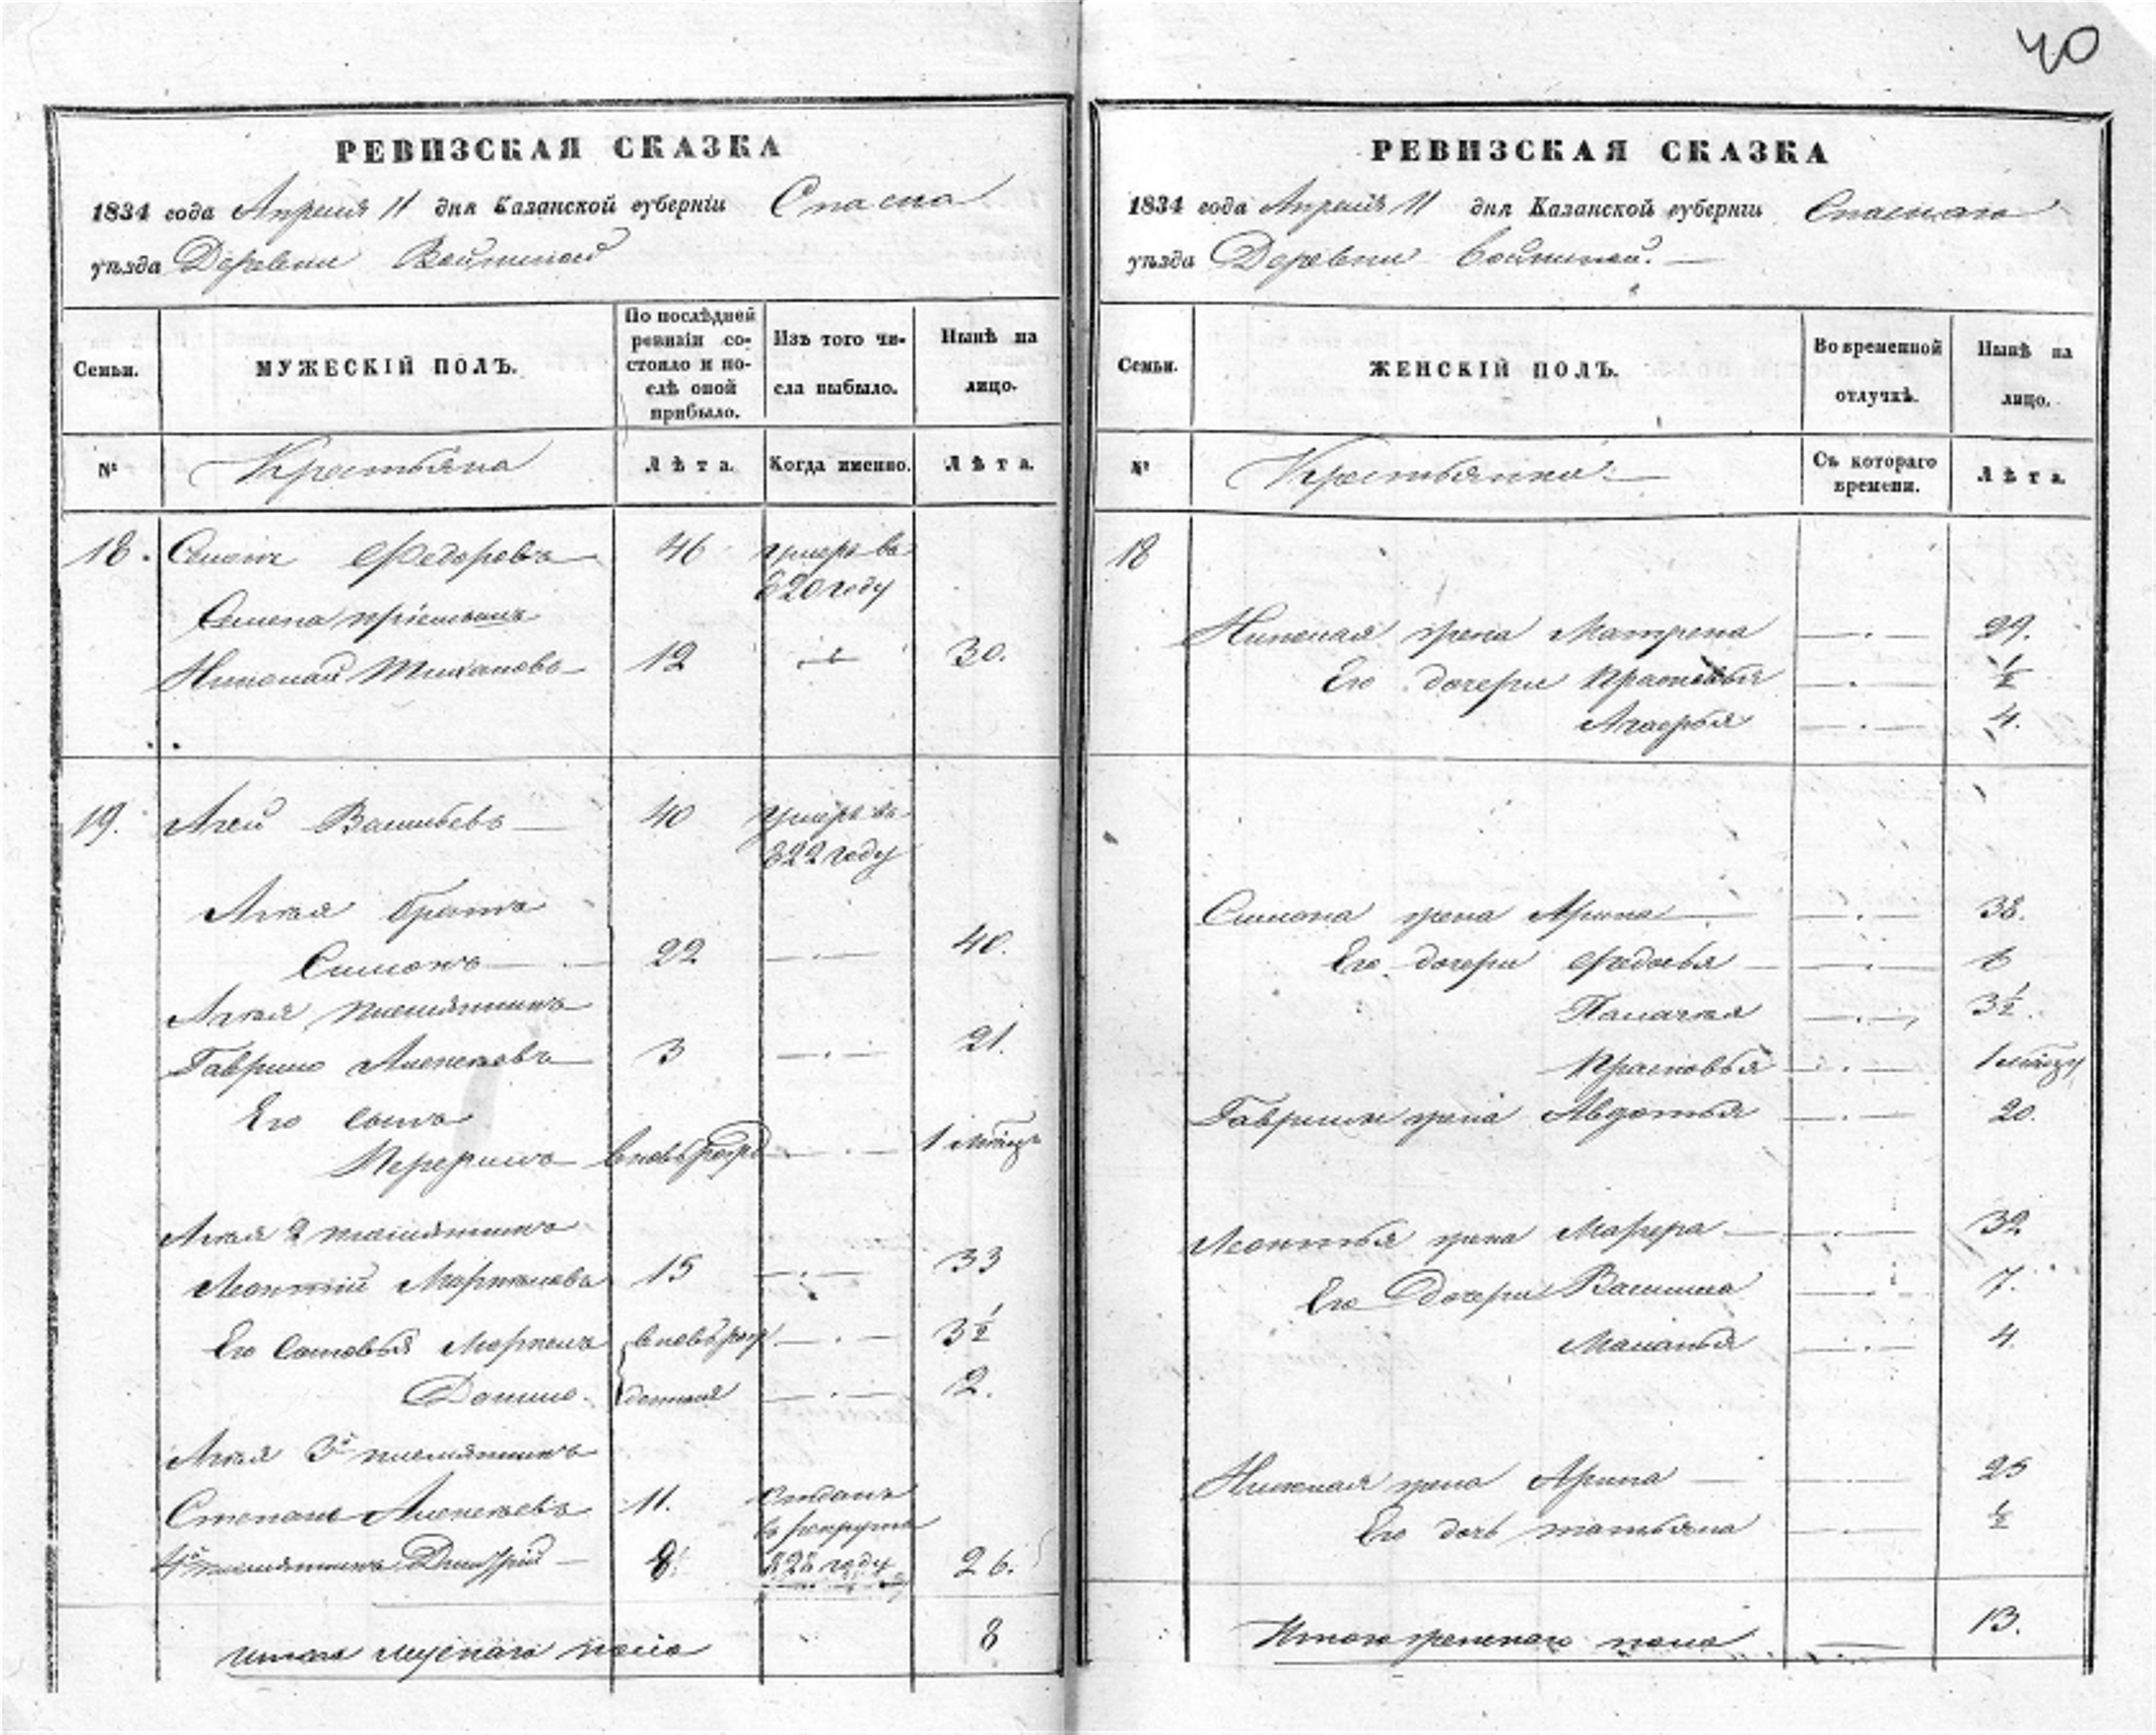 40
РЕВИЗСКАЯ СКАЗКА
1834 года Апреля 11 дня Казанской губерніи Спаска
уѣзда Деревни
Семьи.
МУЖЕСКІЙ ПОЛЪ.
По послѣдней ревизіи состояло и послѣ оной прибыло.
Изъ того числа выбыло.
Нынѣ на лицо.
№
Крестьяна
Лѣта.
Когда именно.
Лѣта.
18. Семенъ Федоровъ 46 умеръ въ
820 году
Семена пріемышъ
Николай 12 30.
19. Агей Васильевъ 40 умеръ въ
822 году
Агея братъ
Симонъ 22 40.
Агея племянникъ
Гаврило Алексеевъ 3 21.
Его сынъ
вновьрожд 1 мѣсяцъ
Агея 2 племянникъ
Леонтій Маркеловъ 15 33
Его сыновья Маркелъ вновьрож 3½
Данило денныя 2.
Агея 3й племянникъ
Степанъ Алексеевъ 11. отданъ
въ рекруты
4й племянникъ Дмитрій 8. 828 году 26.
Итого мужскаго пола 8
РЕВИЗСКАЯ СКАЗКА
1834 года Апреля 11 дня Казанской губерніи Спаскаго
уѣзда Деревни
Семьи.
ЖЕНСКІЙ ПОЛЪ.
Во временной отлучкѣ.
Нынѣ на лицо.
№
Крестьянка
Съ котораго времени.
Лѣта.
18
Николая жена Матрена 29.
Его дочери Прасковья ½
Агафья 4.
Симона жена Арина 38.
Его дочери Федосья 6
Палагея 3½.
Прасковья 1 мѣсяцу
Гаврилы жена Авдотья 20.
Леонтья жена Марфа 32
Его дочери Василиса 7.
Маланья 4.
Николая жена Арина 25
Его дочь Татьяна ½
Итого женскаго пола 13.